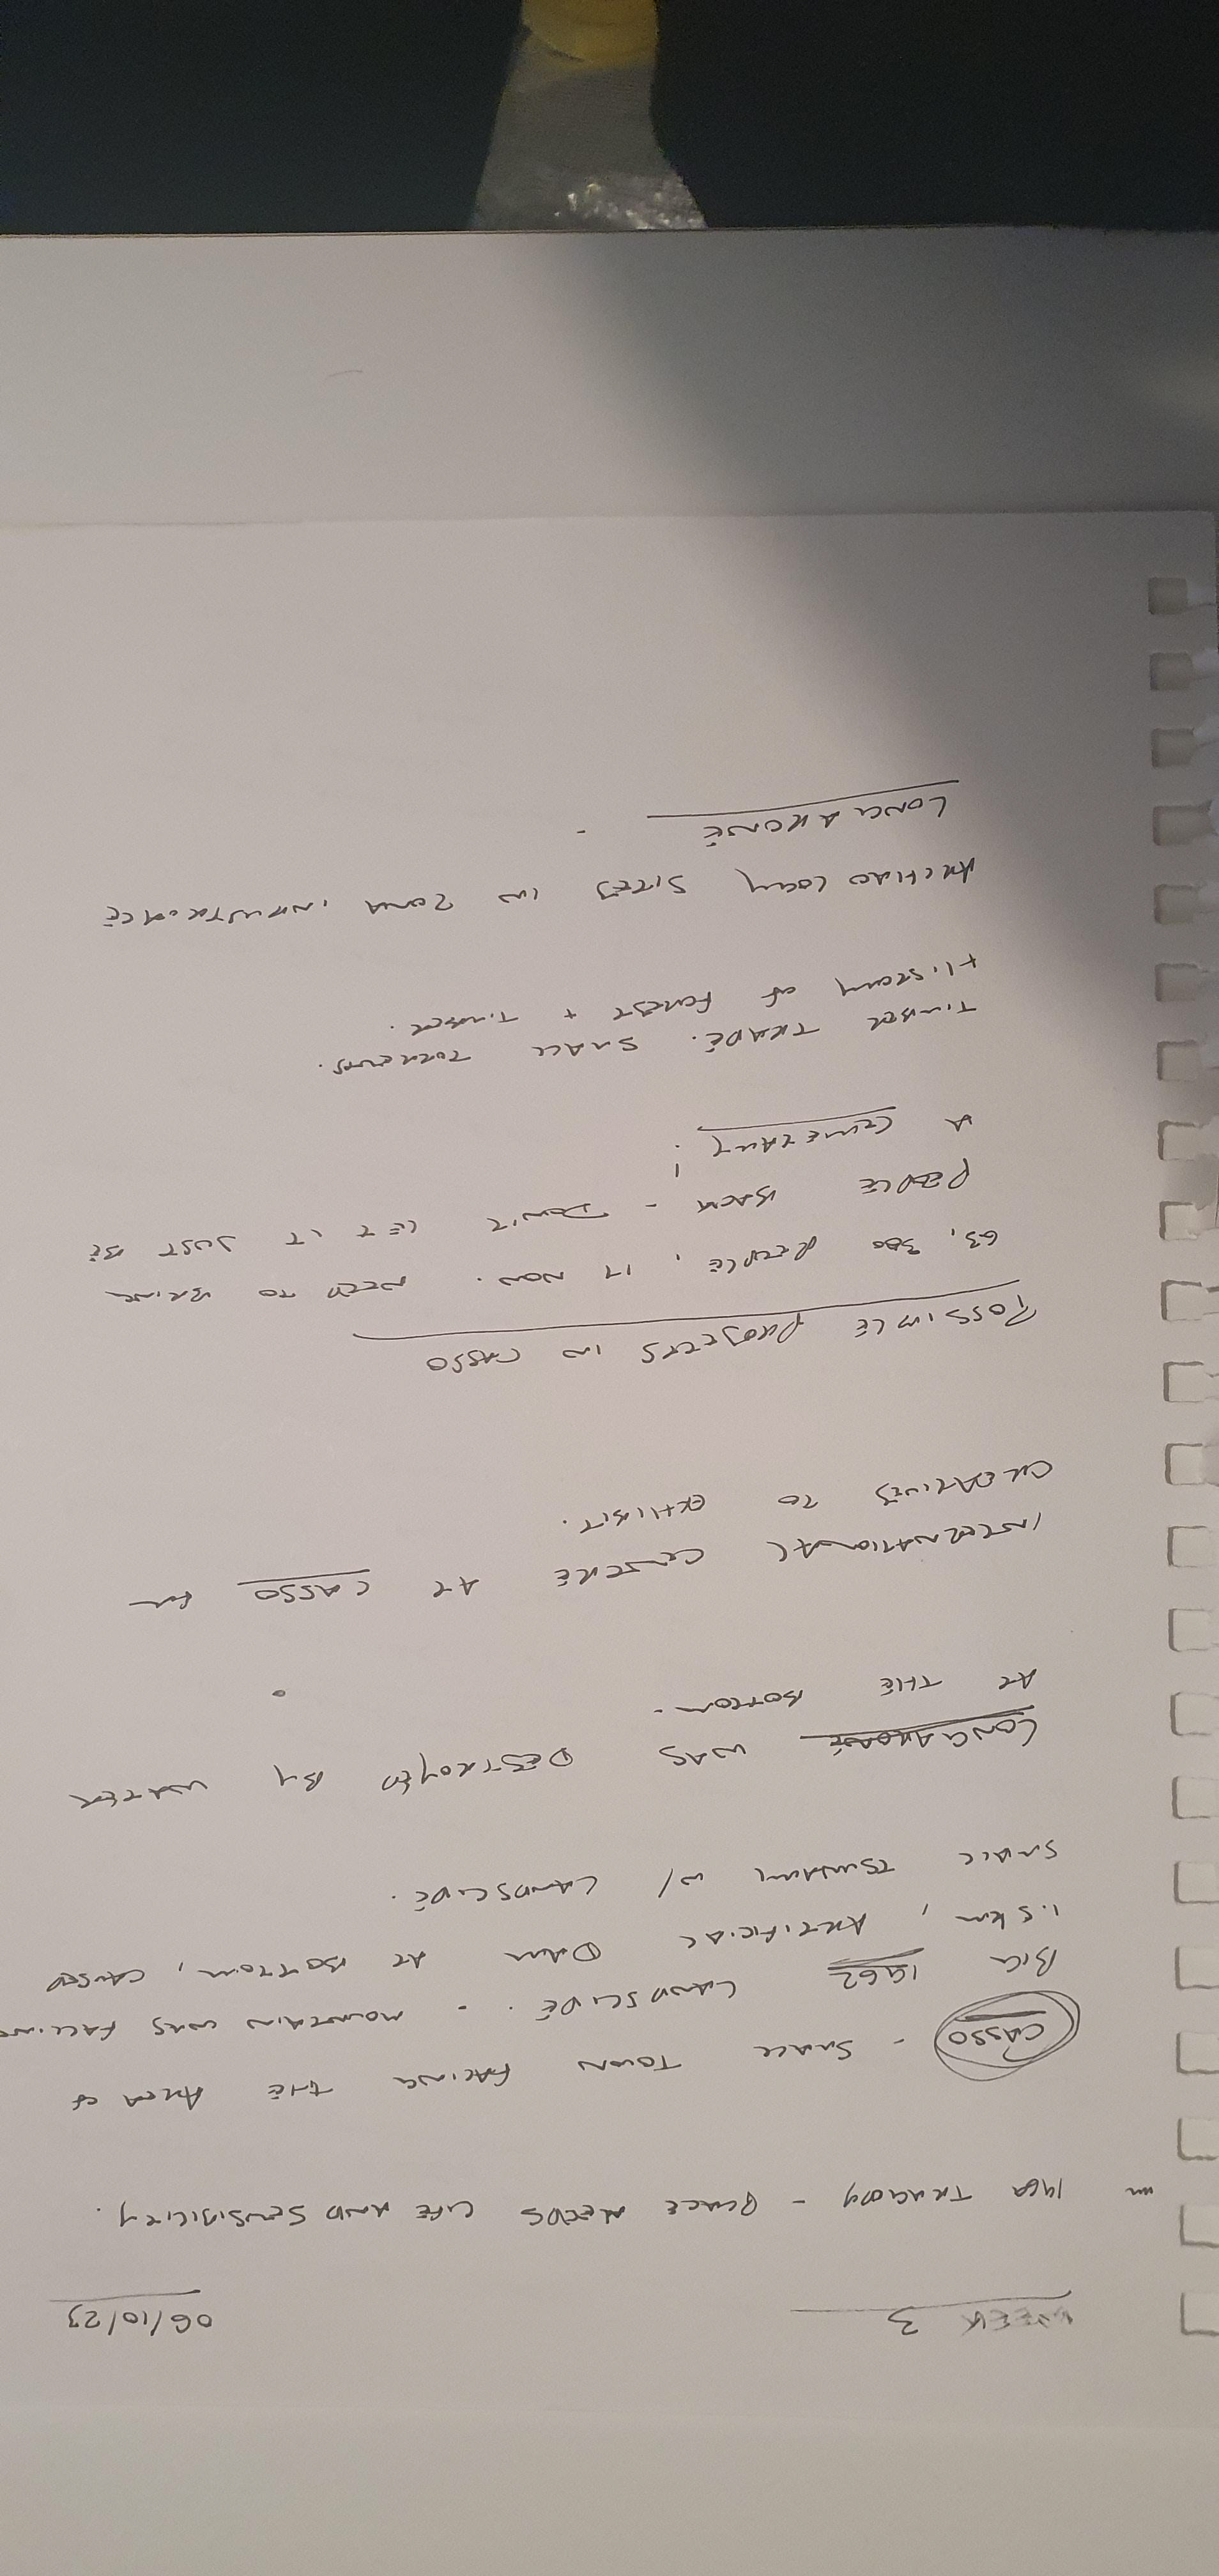 WEEK 3 06/10/23
TRAGEDY - PLACE NEEDS LIFE AND SENSIBILITY.
CASSO - SMALL TOWN FACING THE AREA OF
BIG 1962 LANDSLIDE. - MOUNTAIN WAS FALLING
1.5 km, ARTIFICIAL DAM AT BOTTOM, CAUSED
SMALL TSUNAMI w/ LANDSLIDE.
LONGARONE WAS DESTROYED BY WATER
AT THE BOTTOM.
INTERNATIONAL CENTRE AT CASSO for
CREATIVES TO EXHIBIT.
POSSIBLE PROJECTS IN CASSO
63, 300 PEOPLE, 17 NOW. NEED TO BRING
PEOPLE BACK - DON'T LET IT JUST BE
A CEMETARY!
TIMBER TRADE. SMALL TORRENTS.
HISTORY OF FOREST + TIMBER.
SITES IN ZONA INDUSTRIALE
LONGARONE -